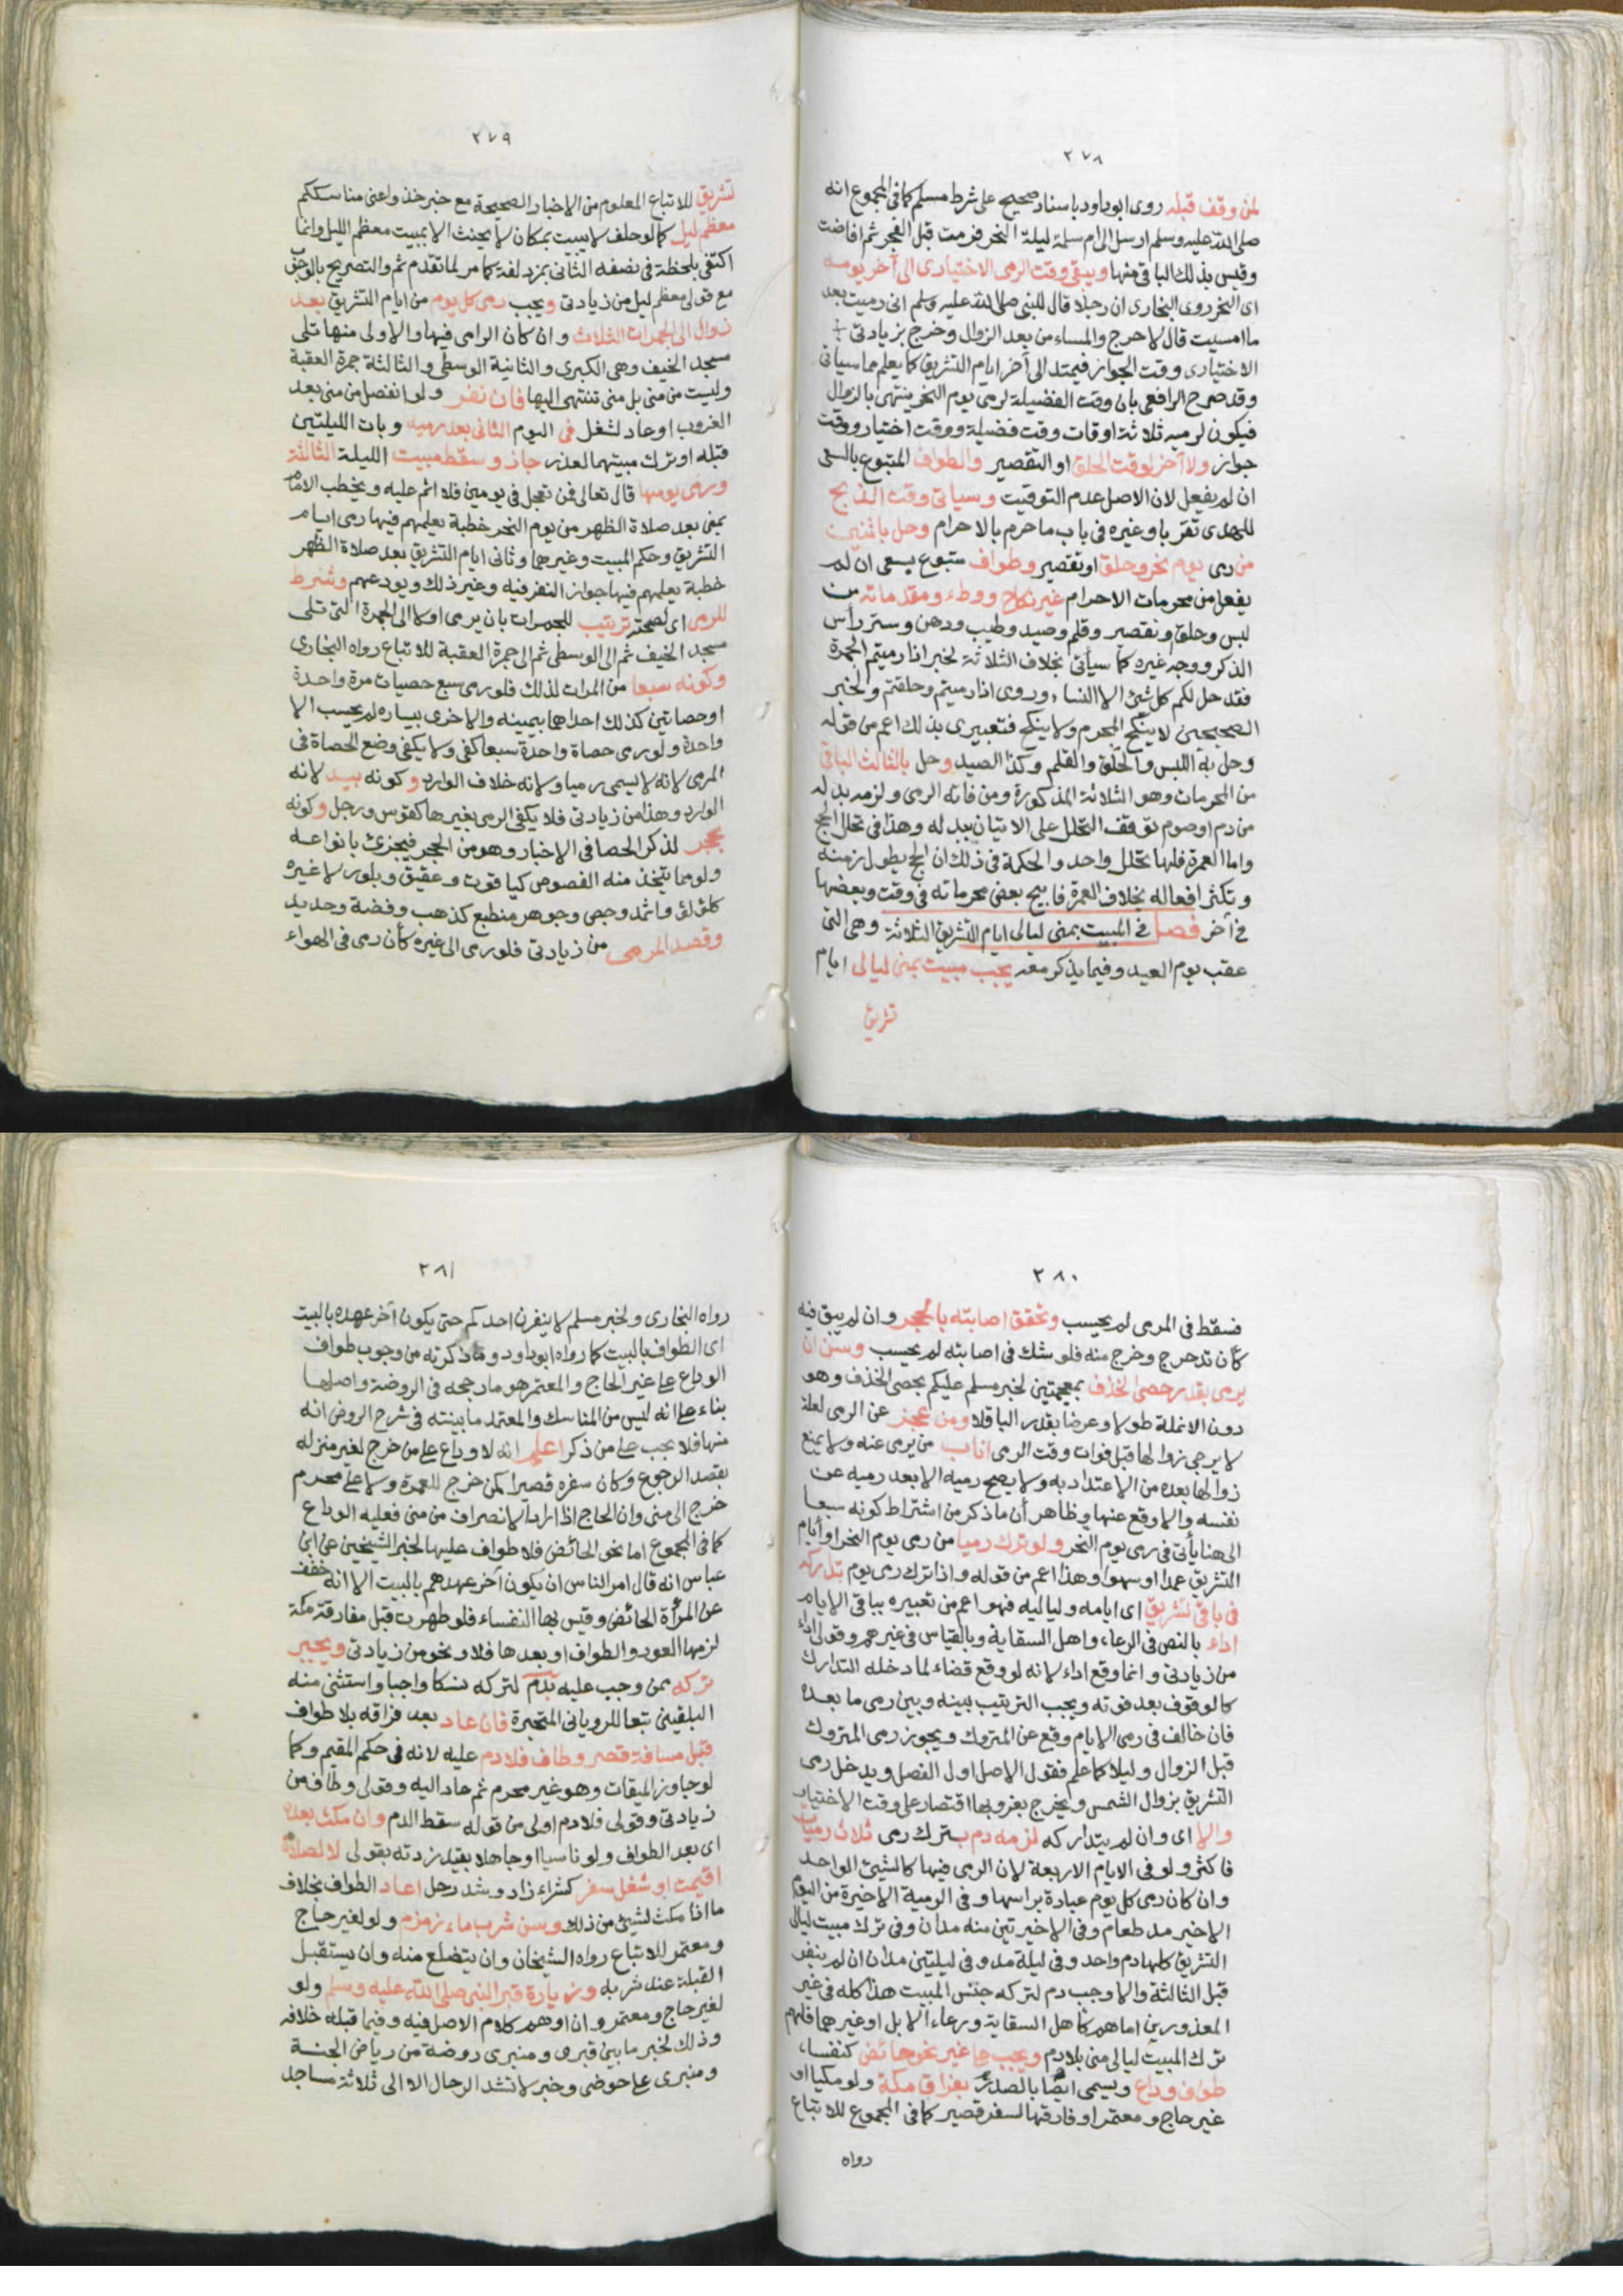 ٢٧٨
لمن وقف قبله روى ابوداود باسناد صحيح على شرط مسلم كما فى المجموع انه
صلى الله عليه وسلم ارسل الى ام سلمة ليلة النحر فرمت قبل الفجر ثم افاضت
وقيس بذلك الباقى منها ويبقى وقت الرمى الاختيارى الى آخر يومه
اى النحر روى البخارى ان رجلا قال للنبى صلى الله عليه وسلم انى رميت بعد
ما امسيت قال لا حرج والمساء من بعد الزوال وخرج بزيادتى
الاختيارى وقت الجواز فيمتد الى آخر ايام التشريق كما يعلم مما سياتى
وقد صرح الرافعى بان وقت الفضيلة لرمى يوم النحر ينتهى بالزوال
فيكون لرميه ثلاثة اوقات وقت فضيلة ووقت اختيار ووقت
جواز ولا آخر لوقت الحلق او التقصير والطواف المتبوع بالسعى
ان لم يفعل لان الاصل عدم التوقيت وسياتى وقت الذبح
للهدى تقربا وغيره فى باب ما حرم بالاحرام وحل باثنين
من رمى يوم نحر وحلق او تقصير وطواف متبوع بسعى ان لم
يفعل من محرمات الاحرام غير نكاح ووطء ومقدماته من
لبس وحلق وتقصير وقلم وصيد وطيب ودهن وستر رأس
الذكر ووجه غيره كما سيأتى بخلاف الثلاثة لخبر اذا رميتم الجمرة
فقد حل لكم كل شئ الا النساء وروى اذا رميتم وحلقتم ولخبر
الصحيحين لا ينكح المحرم ولا ينكح فتعبيرى بذلك اعم من قوله
وحل به اللبس والحلق والقلم وكذا الصيد وحل بالثالث الباقى
من المحرمات وهو الثلاثة المذكورة ومن فاته الرمى ولزمه بدله
من دم او صوم توقف التحلل على الاتيان ببدله وهذا فى تحلل الحج
واما العمرة فلها تحلل واحد والحكمة فى ذلك ان الحج يطول زمنه
وتكثر افعاله بخلاف العمرة فابيح بعض محرماته فى وقت وبعضها
فى آخر فصل فى المبيت بمنى ليالى ايام التشريق الثلاثة وهى التى
عقب يوم العيد وفيما يذكر معه يجب مبيت بمنى ليالى ايام
تشريق
٢٧٩
تشريق للاتباع المعلوم من الاخبار الصحيحة مع خبر خذوا عنى مناسككم
معظم ليل كما لو حلف لا يبيت بمكان لا يحنث الا بمبيت معظم الليل وانما
اكتفى بلحظة فى نصفه الثانى بمزدلفة كما مر لما تقدم ثم والتصريح بالوجوب
مع قولى معظم ليل من زيادتى ويجب رمى كل يوم من ايام التشريق بعد
زوال الى الجمرات الثلاث وان كان الرامى فيها والاولى منها تلى
مسجد الخيف وهى الكبرى والثانية الوسطى والثالثة جمرة العقبة
وليست من منى بل منى تنتهى اليها فان نفر ولو انفصل من منى بعد
الغروب او عاد لشغل فى اليوم الثانى بعد رميه وبات الليلتين
قبله او ترك مبيتهما لعذر جاز وسقط مبيت الليلة الثالثة
ورمى يومها قال تعالى فمن تعجل فى يومين فلا اثم عليه ويخطب الامام
بمنى بعد صلاة الظهر من يوم النحر خطبة يعلمهم فيها رمى ايام
التشريق وحكم المبيت وغيرهما وثانى ايام التشريق بعد صلاة الظهر
خطبة يعلمهم فيها جواز النفر فيه وغير ذلك ويودعهم وشرط
للرمى اى لصحته ترتيب للجمرات بان يرمى اولا الى الجمرة التى تلى
مسجد الخيف ثم الى الوسطى ثم الى جمرة العقبة للاتباع رواه البخارى
وكونه سبعا من المرات لذلك فلو رمى سبع حصيات مرة واحدة
او حصاتين كذلك احداهما بيمينه والاخرى بيساره لم يحسب الا
واحدة ولو رمى حصاة واحدة سبعا كفى ولا يكفى وضع الحصاة فى
المرمى لانه لا يسمى رميا ولانه خلاف الوارد وكونه بيد لانه
الوارد وهذا من زيادتى فلا يكفى الرمى بغيرها كقوس ورجل وكونه
بحجر لذكر الحصا فى الاخبار وهو من الحجر فيجزئ بانواعه
ولو مما يتخذ منه الفصوص كياقوت وعقيق وبلور لا غيره
كلؤلؤ واثمد وجص وجوهر منطبع كذهب وفضة وحديد
وقصد المرمى من زيادتى فلو رمى الى غيره كأن رمى فى الهواء
٢٨٠
فسقط فى المرمى لم يحسب وتحقق اصابته بالحجر وان لم يبق فيه
كأن تدحرج وخرج منه فلو شك فى اصابته لم يحسب وسن ان
يرمى بقدر حصى الخذف بمعجمتين لخبر مسلم عليكم بحصى الخذف وهو
دون الانملة طولا وعرضا بقدر الباقلا ومن عجز عن الرمى لعلة
لا يرجى زوالها قبل فوات وقت الرمى اناب من يرمى عنه ولا يمنع
زوالها بعده من الاعتداد به ولا يصح رميه الا بعد رميه عن
نفسه والا وقع عنها وظاهر أن ما ذكر من اشتراط كونه سبعا
الى هنا يأتى فى رمى يوم النحر ولو ترك رميا من رمى يوم النحر او أيام
التشريق عمدا او سهوا وهذا اعم من قوله واذا ترك رمى يوم تداركه
فى باقى تشريق اى ايامه ولياليه فهو اعم من تعبيره بباقى الايام
اداء بالنص فى الرعاء واهل السقاية وبالقياس فى غيرهم وقولى اداء
من زيادتى وانما وقع اداء لانه لو وقع قضاء لما دخله التدارك
كالوقوف بعد فوته ويجب الترتيب بينه وبين رمى ما بعده
فان خالف فى رمى الايام وقع عن المتروك ويجوز رمى المتروك
قبل الزوال وليلا كما علم فقول الاصل اول الفصل ويدخل رمى
التشريق بزوال الشمس ويخرج بغروبها اقتصار على وقت الاختيار
والا اى وان لم يتداركه لزمه دم بترك رمى ثلاث رميات
فاكثر ولو فى الايام الاربعة لان الرمى فيها كالشئ الواحد
وان كان رمى كل يوم عبادة براسها وفى الرمية الاخيرة من اليوم
الاخير مد طعام وفى الاخيرتين منه مدان وفى ترك مبيت ليالى
التشريق كلها دم واحد وفى ليلة مد وفى ليلتين مدان ان لم ينفر
قبل الثالثة والا وجب دم لتركه جنس المبيت هذا كله فى غير
المعذورين اما هم كاهل السقاية ورعاء الابل او غيرهما فلهم
ترك المبيت ليالى منى بلا دم ويجب على غير نحو حائض كنفساء
طواف وداع ويسمى ايضا بالصدر بفراق مكة ولو مكيا او
غير حاج ومعتمر او فارقها لسفر قصير كما فى المجموع للاتباع
رواه
٢٨١
رواه البخارى ولخبر مسلم لا ينفرن احدكم حتى يكون آخر عهده بالبيت
اى الطواف بالبيت كما رواه ابوداود وما ذكرته من وجوب طواف
الوداع على غير الحاج والمعتمر هو ما رجحه فى الروضة واصلها
بناء على انه ليس من المناسك والمعتمد ما بينته فى شرح الروض انه
منها فلا يجب على من ذكر اعلم انه لا وداع على من خرج لغير منزله
بقصد الرجوع وكان سفره قصيرا كمن خرج للعمرة ولا على محرم
خرج الى منى وان الحاج اذا اراد الانصراف من منى فعليه الوداع
كما فى المجموع اما نحو الحائض فلا طواف عليها لخبر الشيخين عن ابن
عباس انه قال امر الناس ان يكون آخر عهدهم بالبيت الا انه خفف
عن المرأة الحائض وقيس بها النفساء فلو طهرت قبل مفارقة مكة
لزمها العود والطواف او بعدها فلا ونحو من زيادتى ويجبر
تركه ممن وجب عليه بدم لتركه نسكا واجبا واستثنى منه
البلقينى تبعا للرويانى المتحيرة فان عاد بعد فراقه بلا طواف
قبل مسافة قصر وطاف فلا دم عليه لانه فى حكم المقيم وكما
لو جاوز الميقات وهو غير محرم ثم عاد اليه وقولى وطاف من
زيادتى وقولى فلا دم اولى من قوله سقط الدم وان مكث بعده
اى بعد الطواف ولو ناسيا او جاهلا بقيد زدته بقولى لا لصلاة
اقيمت او شغل سفر كشراء زاد وشد رحل اعاد الطواف بخلاف
ما اذا مكث لشئ من ذلك وسن شرب ماء زمزم ولو لغير حاج
ومعتمر للاتباع رواه الشيخان وان يتضلع منه وان يستقبل
القبلة عند شربه وزيارة قبر النبى صلى الله عليه وسلم ولو
لغير حاج ومعتمر وان اوهم كلام الاصل فيه وفيما قبله خلافه
وذلك لخبر ما بين قبرى ومنبرى روضة من رياض الجنة
ومنبرى على حوضى وخبر لا تشد الرحال الا الى ثلاثة مساجد